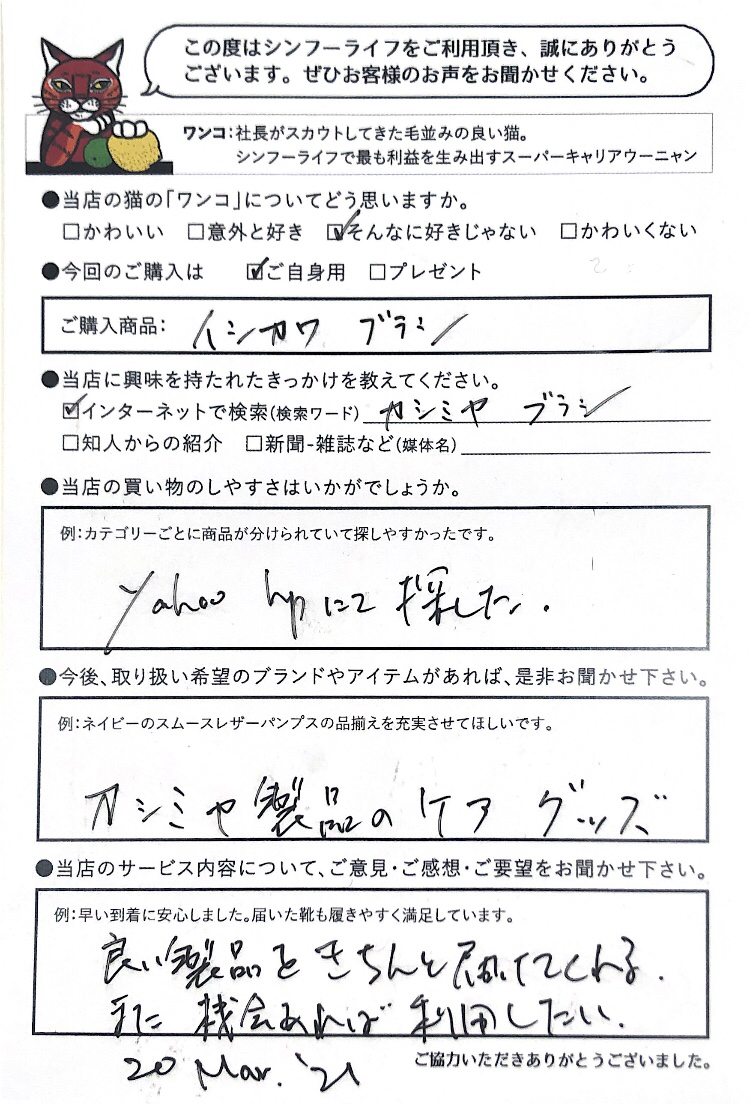 この度はシンフーライフをご利用頂き、誠にありがとう
ございます。ぜひお客様のお声をお聞かせください。
ワンコ:社長がスカウトしてきた毛並みの良い猫。
シンフーライフで最も利益を生み出すスーパーキャリアウーニャン
●当店の猫の「ワンコ」についてどう思いますか。
□かわいい □意外と好き ☑そんなに好きじゃない □かわいくない
●今回のご購入は ☑ご自身用 □プレゼント
ご購入商品: イシカワ ブラシ
●当店に興味を持たれたきっかけを教えてください。
☑インターネットで検索(検索ワード) カシミヤ ブラシ
□知人からの紹介 □新聞-雑誌など(媒体名)
●当店の買い物のしやすさはいかがでしょうか。
例:カテゴリーごとに商品が分けられていて探しやすかったです。
Yahoo hpにて探した.
●今後、取り扱い希望のブランドやアイテムがあれば、是非お聞かせ下さい。
例:ネイビーのスムースレザーパンプスの品揃えを充実させてほしいです。
カシミヤ製品のケアグッズ
●当店のサービス内容について、ご意見・ご感想・ご要望をお聞かせ下さい。
例:早い到着に安心しました。届いた靴も履きやすく満足しています。
良い製品をきちんと届けてくれる.
また機会あれば利用したい.
20 Mar. '21
ご協力いただきありがとうございました。